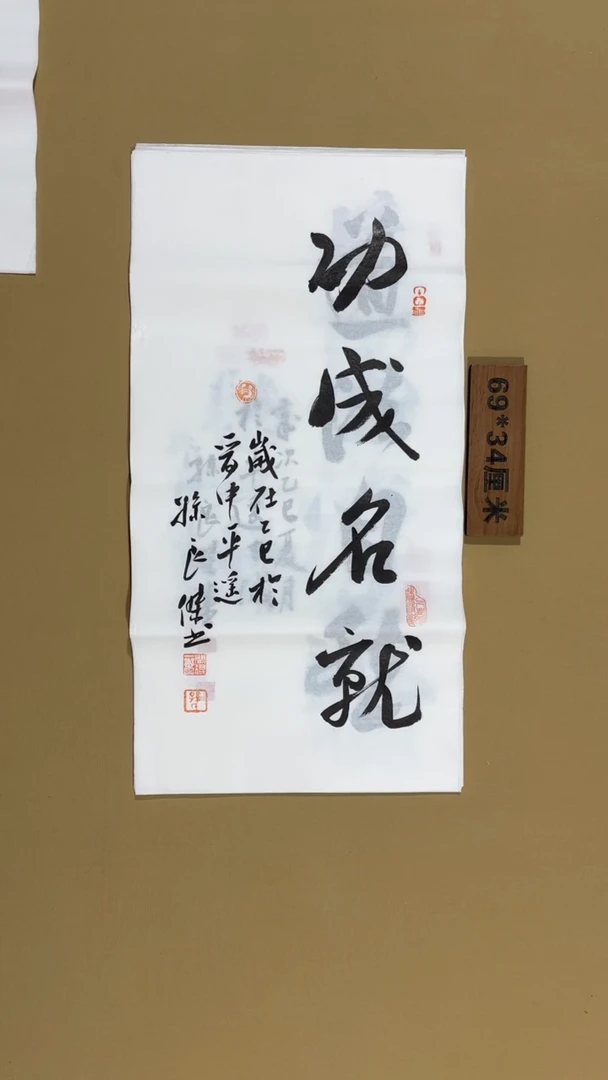 功成名就
歲在乙巳於
晉中平遥
孫良傑书
69*34厘米